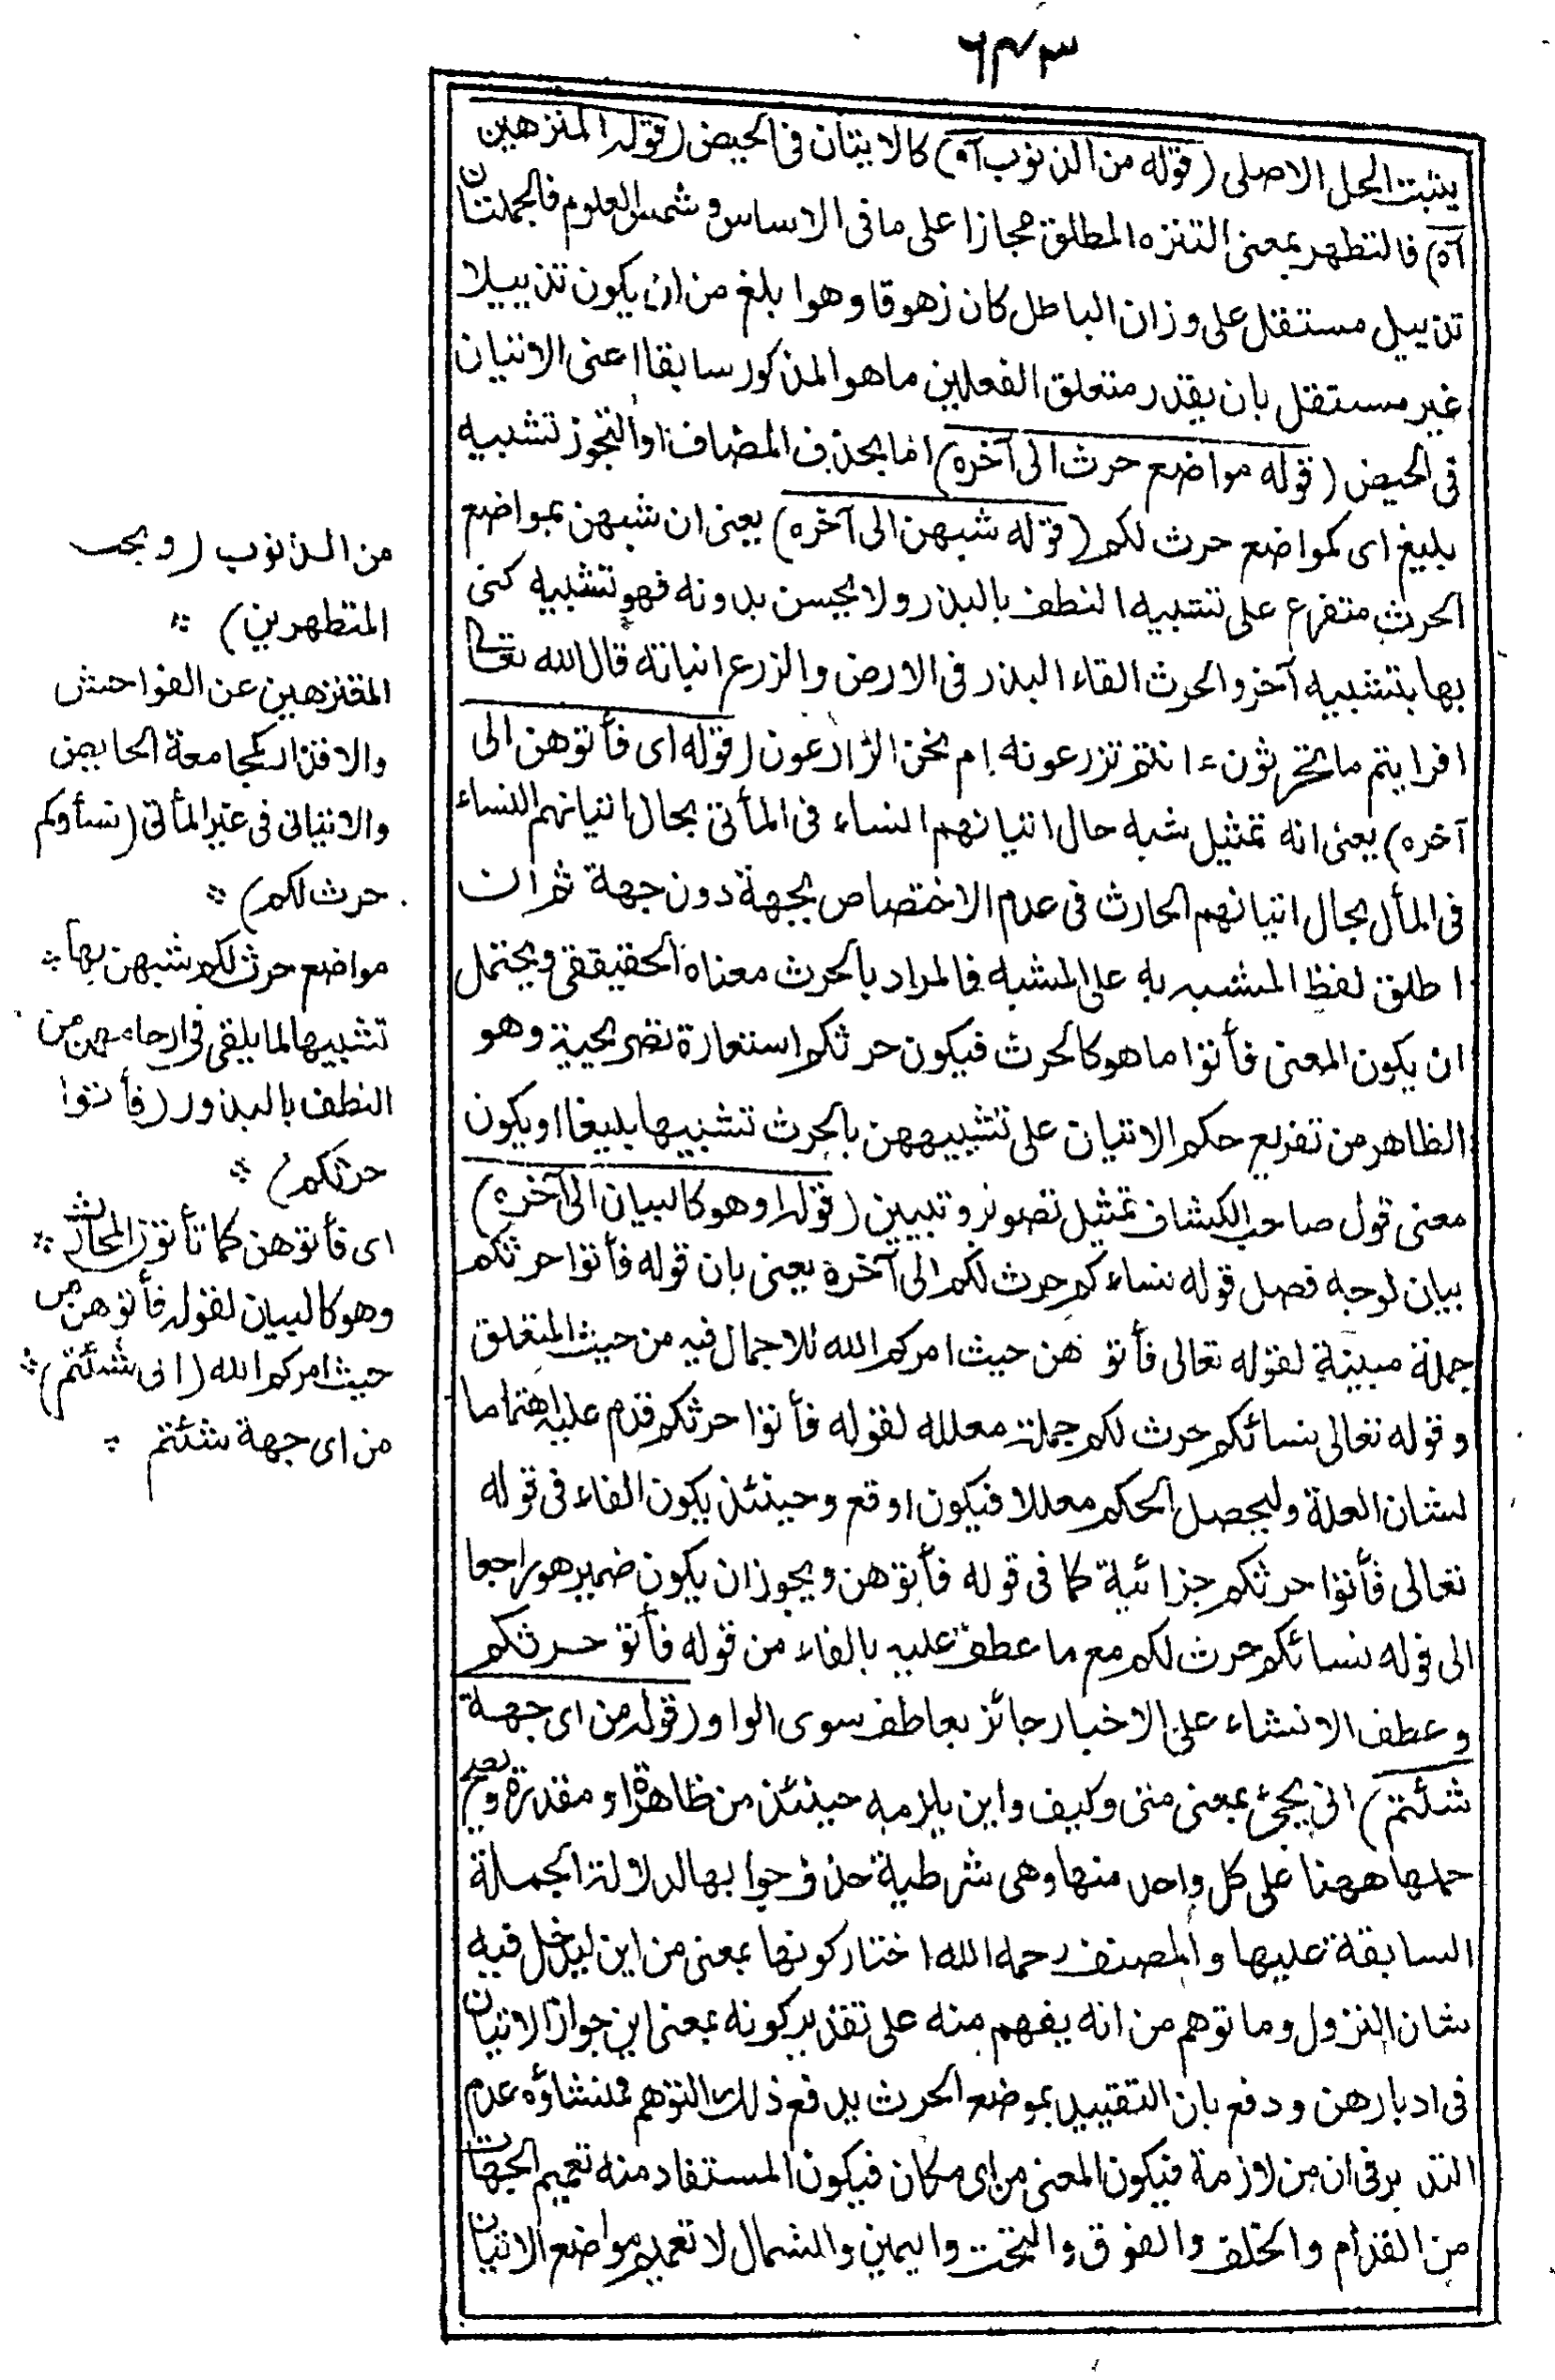 ٦٤٣
يثبت الحل الاصلى (قوله من الذنوب آه) كالاتيان فى الحيض (قوله المتنزهين
آه) فالتطهر بمعنى التنزه المطلق مجازا على ما فى الاساس وشمس العلوم فالجملتان
تذييل مستقل على وزان الباطل كان زهوقا وهوا بلغ من ان يكون تذييلا
غير مستقل بان يقدر متعلق الفعلين ما هو المذكور سابقا اعنى الاتيان
فى الحيض (قوله مواضع حرث الى آخره) اما بحذف المضاف او التجوز تشبيه
بليغ اى كمواضع حرث لكم (قوله شبهن الى آخره) يعنى ان شبهن بمواضع
الحرث متفرع على تشبيه النطف بالبذر ولا يحسن بدونه فهو تشبيه كنى
بها بتشبيه آخر والحرث القاء البذر فى الارض والزرع انباته قال الله تعالى
افرايتم ما تحرثون ءانتم تزرعونه ام نحن الزارعون (قوله اى فأتوهن الى
آخره) يعنى انه تمثيل شبه حال اتيانهم النساء فى المأتى بحال اتيانهم النساء
فى المأل بحال اتيانهم الحارث فى عدم الاختصاص بجهة دون جهة ثم ان
اطلق لفظ المشبه به على المشبه فالمراد بالحرث معناه الحقيقى ويحتمل
ان يكون المعنى فأتوا ما هو كالحرث فيكون حرثكم استعارة تصريحية وهو
الظاهر من تفريع حكم الاتيان على تشبيههن بالحرث تشبيها بليغا او يكون
معنى قول صاحب الكشاف تمثيل تصوير وتبيين (قوله وهو كالبيان الى آخره)
بيان لوجه فصل قوله نساءكم حرث لكم الى آخرة يعنى بان قوله فأتوا حرثكم
جملة مبينة لقوله تعالى فأتو هن حيث امركم الله للاجمال فيه من حيث المتعلق
وقوله تعالى نسائكم حرث لكم جملة معللة لقوله فأتوا حرثكم قدم عليه اهتماما
لشان العلة وليحصل الحكم معللا فيكون اوقع وحينئذ يكون الفاء فى قوله
تعالى فأتوا حرثكم جزائية كما فى قوله فأتوهن ويجوز ان يكون ضمير هو راجعا
الى قوله نسائكم حرث لكم مع ما عطف عليه بالفاء من قوله فأتو حرثكم
وعطف الانشاء على الاخبار جائز بعاطف سوى الواو (قوله من اى جهة
شئتم) انى يجئ بمعنى متى وكيف واين يلزمه حينئذ من ظاهرة او مقدرة
حملها ههنا على كل واحد منها وهى شرطية حذف جوابها لدلالة الجملة
السابقة عليها والمصنف رحمه الله اختار كونها بمعنى من اين ليدخل فيه
شان النزول وما توهم من انه يفهم منه على تقدير كونه بمعنى اين جواز الاتيان
فى ادبارهن ودفع بان التقييد بموضع الحرث يدفع ذلك التوهم فمنشاؤه عدم
التدبر فى ان من لازمة فيكون المعنى من اى مكان فيكون المستفاد منه تعميم الجهات
من القدام والخلف والفوق والتحت واليمين والشمال لا تعميم مواضع الاتيان
من الذنوب (ويحب
المتطهرين)
المتنزهين عن الفواحش
والاقذار كمجامعة الحايض
والاتيانى فى غير المأتى (نسأوكم
حرث لكم)
مواضع حرث لكم شبهن بها
تشبيها لما يلقى فى ارحامهن من
النطف بالبذور (فأتوا
حرثكم)
اى فأتوهن كما تأتون المحارث
وهو كالبيان لقوله فأتوهن من
حيث امركم الله (انى شئتم)
من اى جهة شئتم